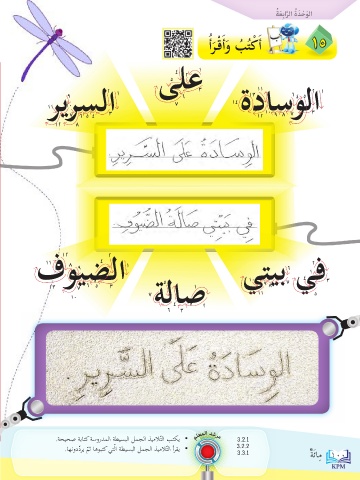 الوَحْدَةُ الرَّابِعَةُ
١٥ أَكْتُبُ وَأَقْرَأُ
الوسادة على السرير
الوِسَادَةُ عَلَى السَّرِيرِ.
فِي بَيْتِي صَالَةُ الضُّيُوفِ.
في بيتي صالة الضيوف
الوِسَادَةُ عَلَى السَّرِيرِ.
3.2.1 • يكتب التلاميذ الجمل البسيطة المدروسة كتابة صحيحة.
3.2.2
3.3.1 • يقرأ التلاميذ الجمل البسيطة الّتي كتبوها ثمّ يردّدونها.
مِائَةٌ
KPM